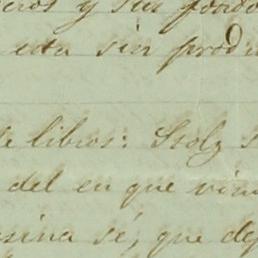 y sus fondo
esta sin prod
de libros: Stolz s
del en que vin
sina sé, que dej